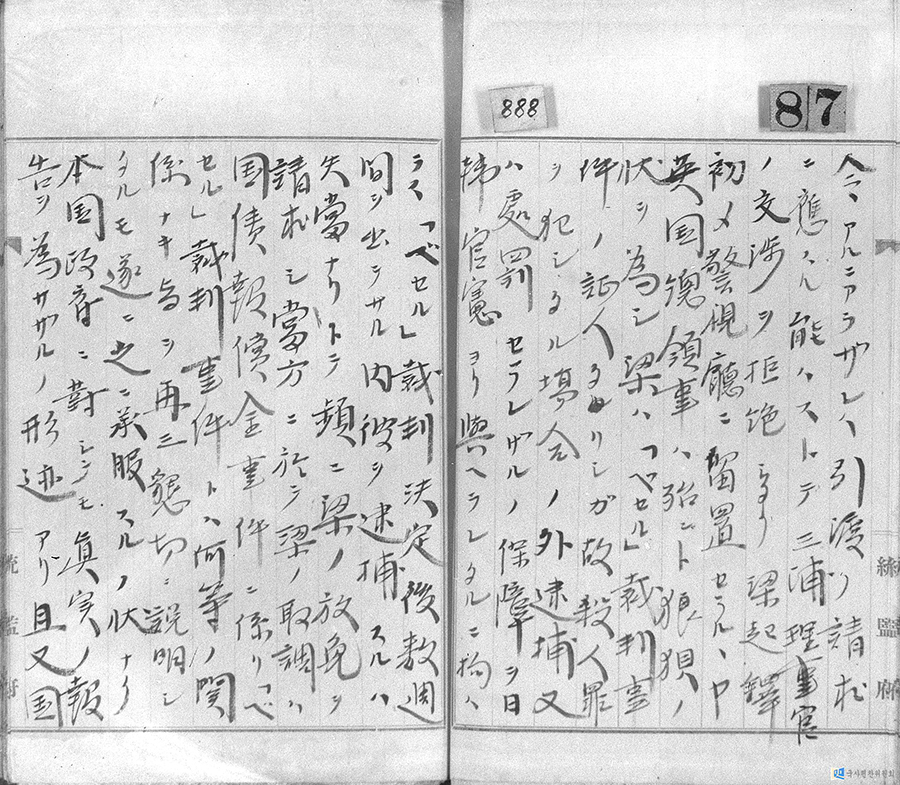 888
87
令アルニアラザレハ引渡ノ請求
ニ應スル能ハストテ三浦理事官
ノ交渉ヲ拒絶シタリ梁起鐸
初メ警視廳ニ留置セラルヽヤ
英国総領事ハ殆ント狼狽ノ
状ヲ為シ梁ハ「ベセル」裁判事
件ノ証人タリシガ故殺人罪
ヲ犯シタル場合ノ外逮捕又
ハ處罰セラレザルノ保障ヲ日
韓官憲ヨリ與ヘラレタルニ拘ハ
ラス「ベセル」裁判決定後数週
間ヲ出テサル内彼ヲ逮捕スルハ
失當ナリトテ頻ニ梁ノ放免ヲ
請求シ當方ニ於テ梁ノ取調ハ
国債報償金事件ニ係リ「ベ
セル」裁判事件トハ何等ノ関
係ナキ旨ヲ再三懇切ニ説明シ
タルモ遂ニ之ニ承服スルノ状ナク
本国政府ニ對シテモ眞実ノ報
告ヲ為サザルノ形迹アリ且又国
統監府
統監府
국사편찬위원회